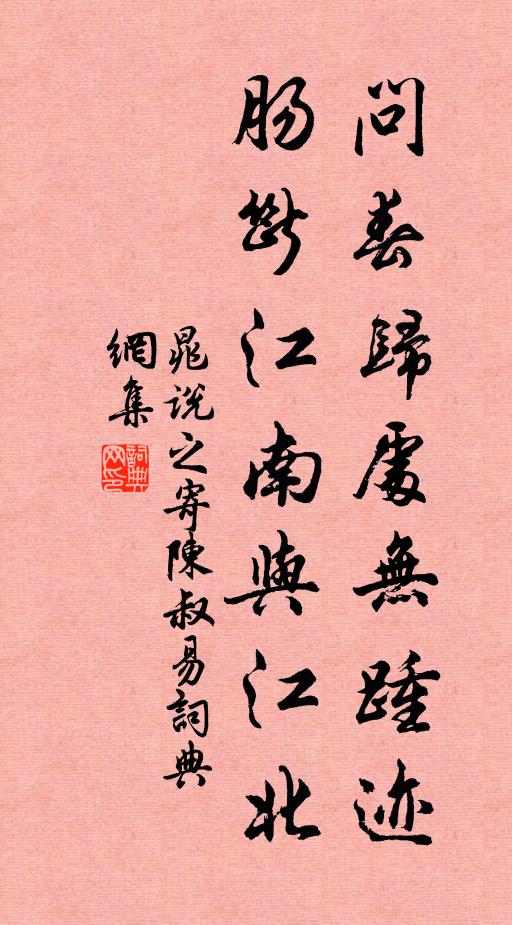 問春歸處無踵迹
肠斷江南與江北
晁说之寄陳叔易詞典
網集
詞典
网印